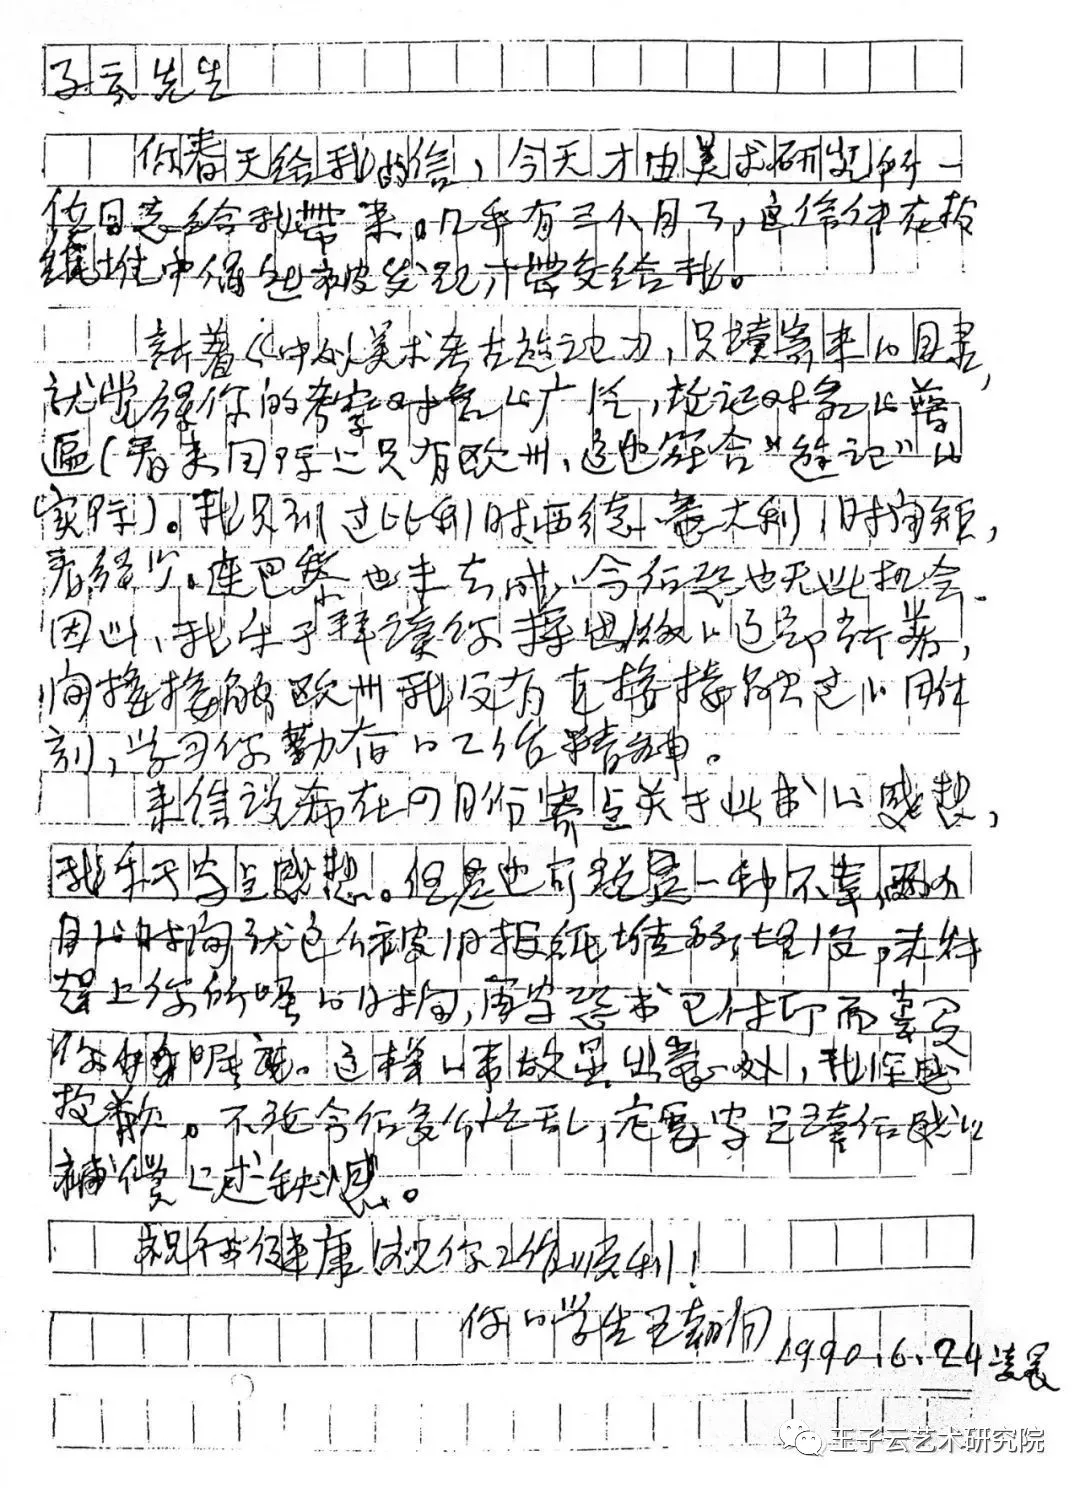 子云先生
你春天给我的信，今天才由美术研究所一
位同志给我带来。几乎有三个月了，这信件在报
纸堆中偶然被发现才带交给我。
新著《中外美术考古游记》，只读寄来的目录，
就觉得你的考察对象的广泛，游记对象的普
遍(看来国际上只有欧洲，这也符合"游记"的
实际)。我只到过比利时西德、意大利，时间短，
看得少。连巴黎也未去成，今后恐也无此机会。
因此，我乐于拜读你将出版的这部新著，
间接接触欧洲我没有直接接触过的
刻，学习你勤奋的工作精神。
来信说希在四月份寄点关于此书的感想，
我乐于写点感想。但是也可说是一种不幸，两个
月的时间就包个被旧报纸堆所埋没，未能
赶上你所嘱的时间，再写恐书已付印而
你。这样的事故显出意外，我深感
抱歉。不论今后多么忙乱，定要写足读后感以
补偿上述缺憾。
祝你健康 祝你工作顺利！
你的学生王朝闻
1990.6.24凌晨
王子云艺术研究院